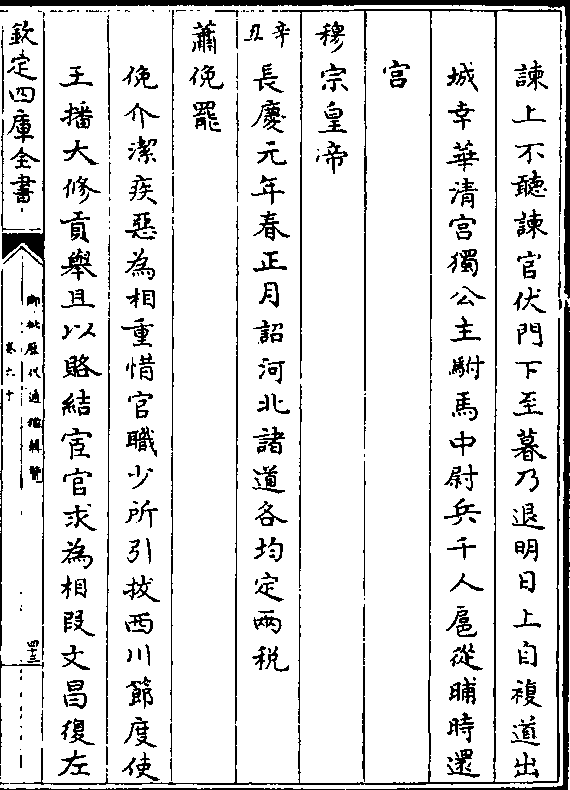 諫上不聽諫官伏門下至暮乃退明日上自複道出
城幸華清宫獨公主駙馬中尉兵千人扈從晡時還
宫
穆宗皇帝
辛丑長慶元年春正月詔河北諸道各均定兩税
蕭俛罷
俛介潔疾惡為相重惜官職少所引拔西川節度使
王播大修貢舉且以賂結宦官求為相段文昌復左
欽定四庫全書
御批歷代通鑑輯覽
卷六十
四十三